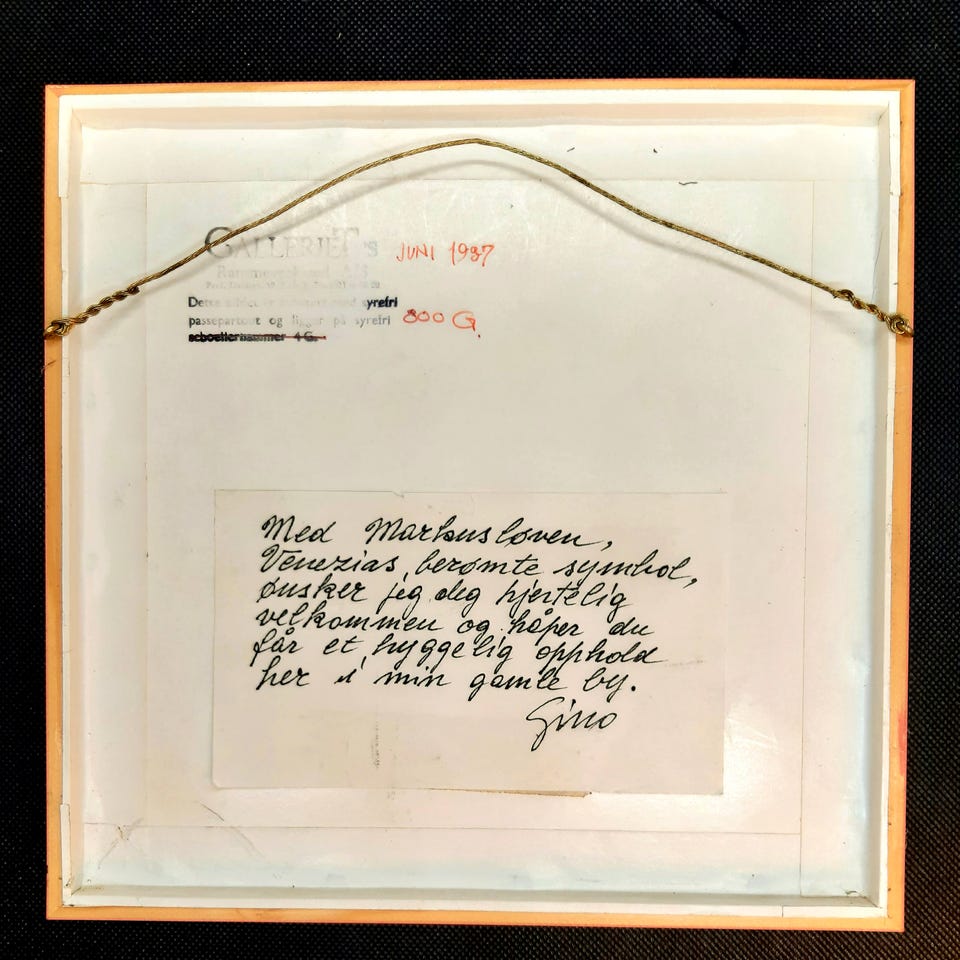 GALLERIET's JUNI 1987
Rammeverksted A/S
Dette syrefri
passepartout og ligger på syrefri 800 G.
schoellerhammer 4 G.
Med Markusløven,
Venezias berømte symbol,
ønsker jeg deg hjertelig
velkommen og håper du
får et hyggelig opphold
her i min gamle by.
Gino